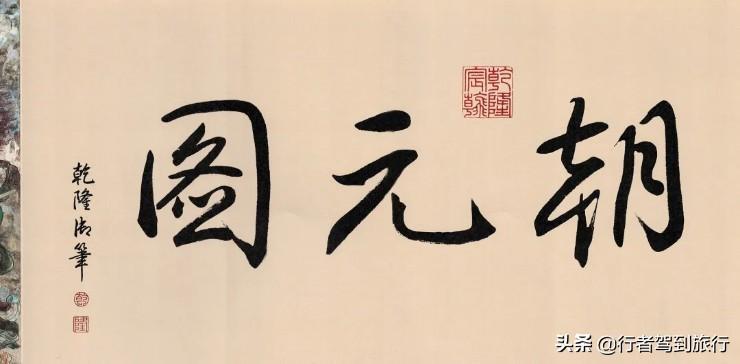 朝元圖
乾隆宸翰
乾隆御筆
乾
隆
头条 @行者驾到旅行